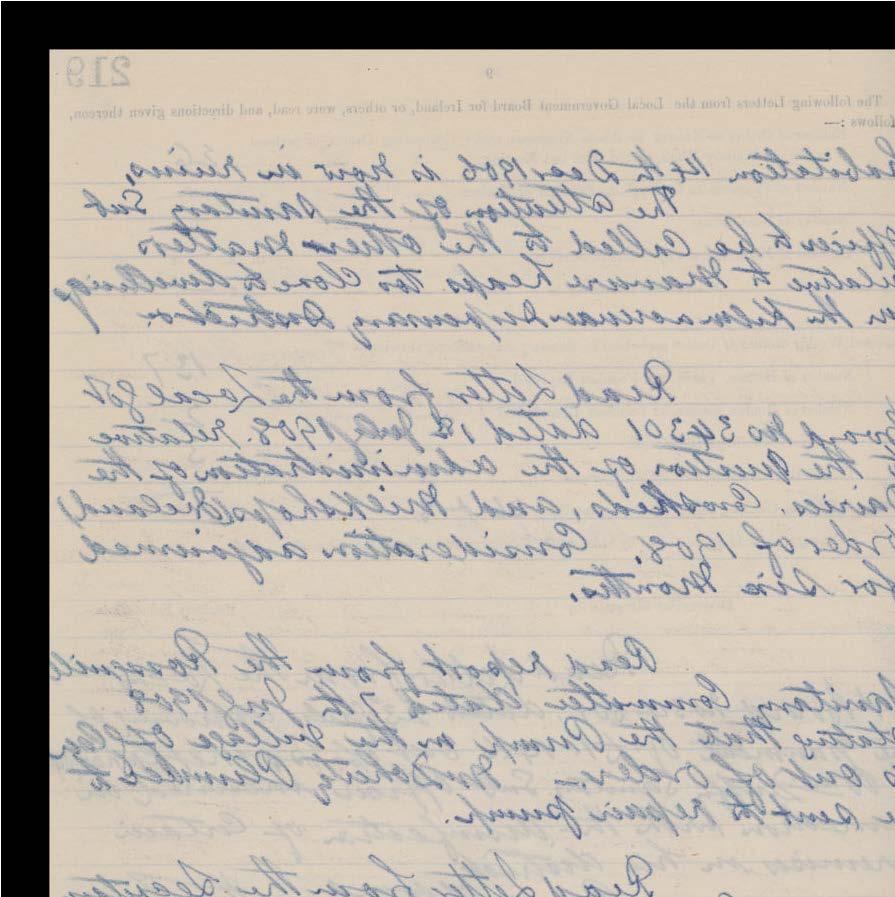 219
9
The following Letters from the Local Government Board for Ireland, or others, were read, and directions given thereon,
follows :—
habitation 14th Dec 1906 is now in ruins,
The attention of the Sanitary Sub
Officer to be called to the other matters
relative to Manure heaps too close to dwellings
in the Kilmacrenan Dispensary District.
Read Letter from the Local Gov
No 34301 dated July 1908. relative
to the Question of the administration of the
Dairies, Cowsheds, and Milkshops (Ireland)
Order of 1908. Consideration adjourned
for six Months.
Read report from the Rosguill
Sanitary Committee dated 7th July 1908
stating that the Pump in the Village of
is out of order. Doherty Plumber to
be sent to repair pump.
Read Letter from the Secretary